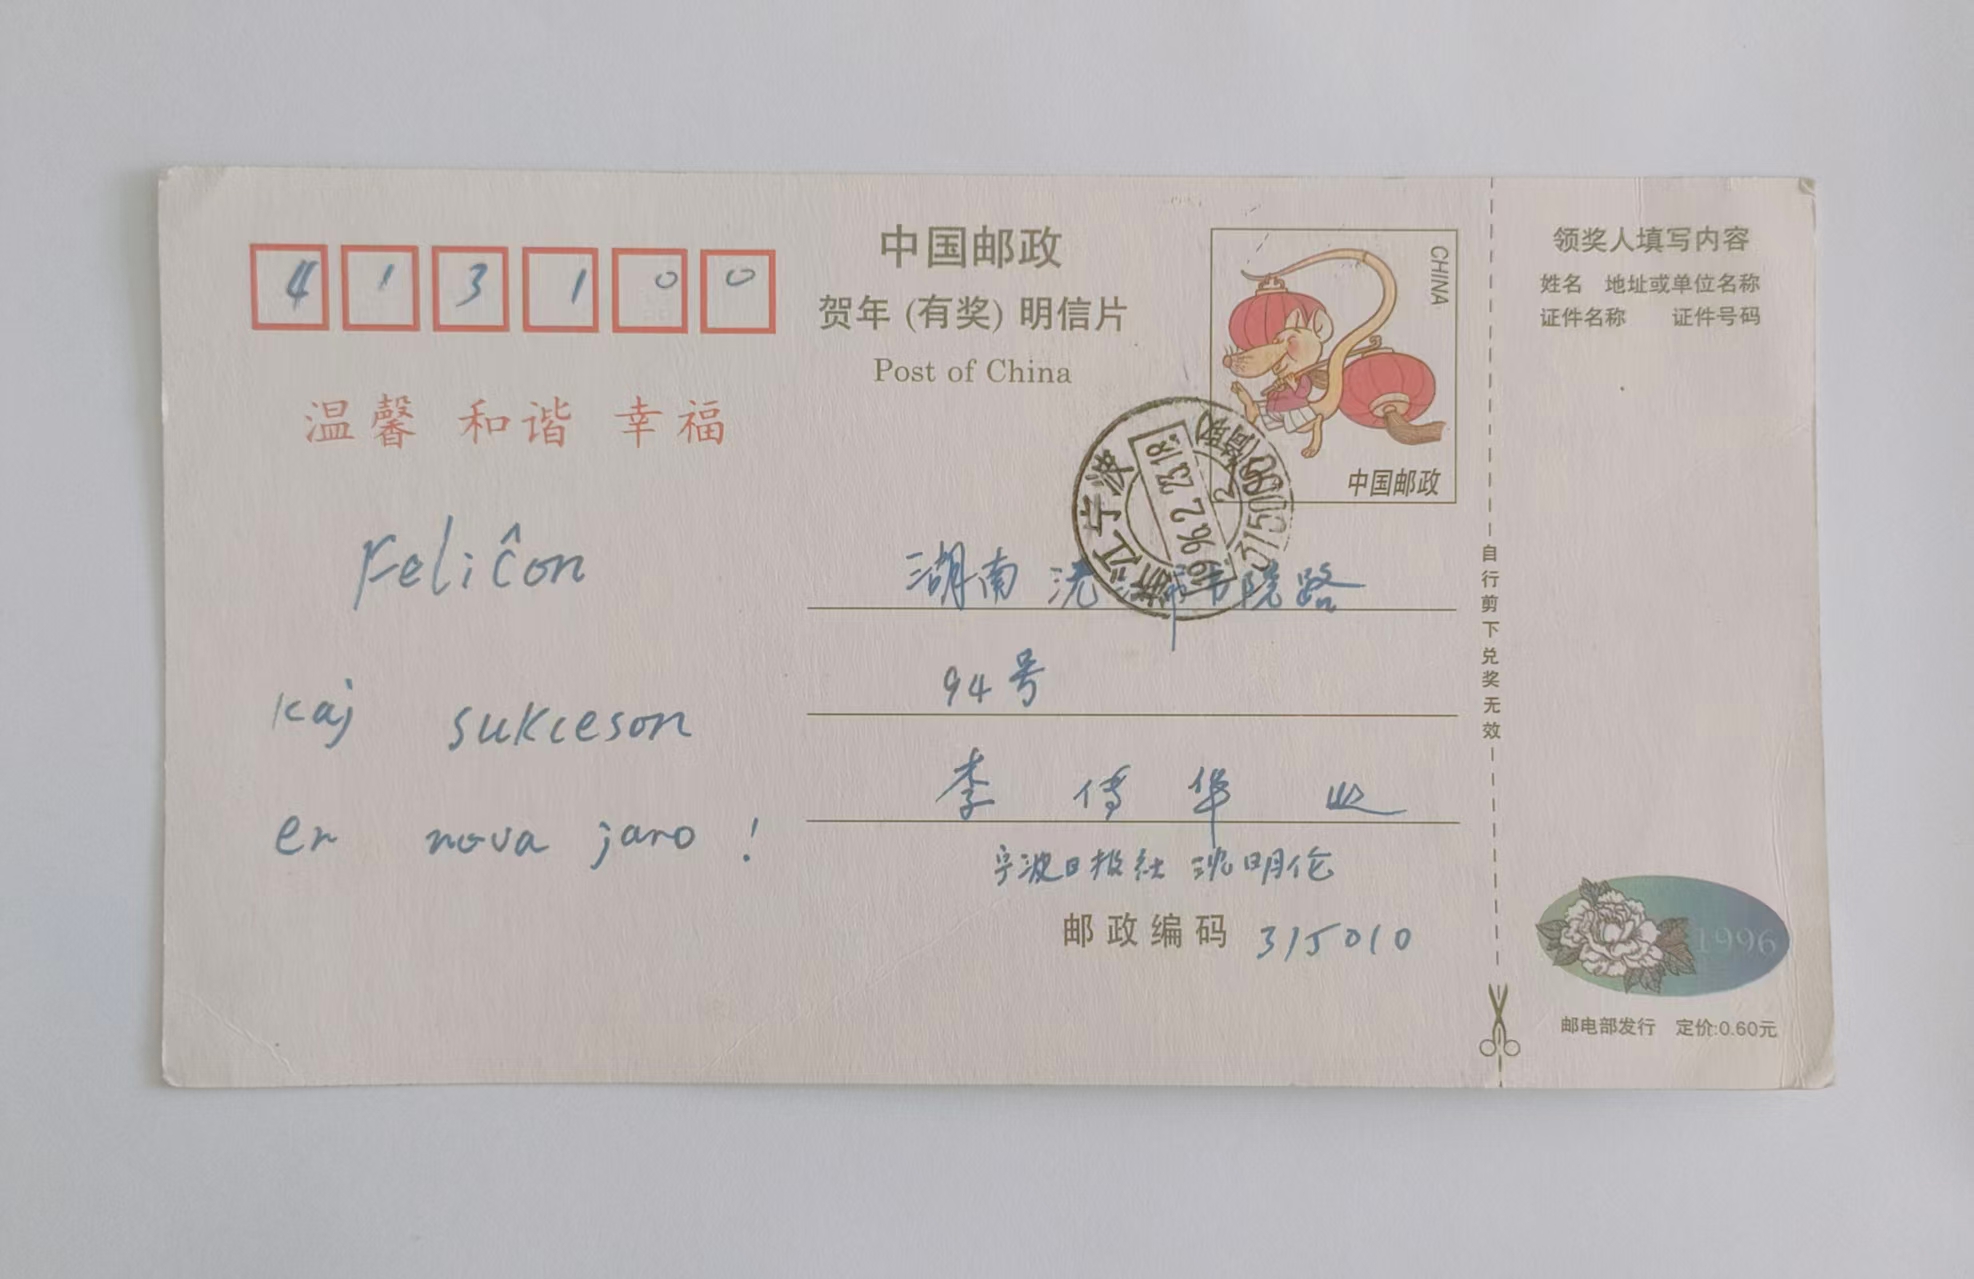 413100
中国邮政
贺年(有奖)明信片
Post of China
CHINA
中国邮政
温馨 和谐 幸福
Feliĉon
kaj sukceson
en nova jaro!
浙江宁波
1996.2.23.18
湖南 沅江市书院路
94号
李 传 华 收
宁波日报社 沈明伦
邮政编码 315010
自行剪下兑奖无效
领奖人填写内容
姓名 地址或单位名称
证件名称 证件号码
1996
邮电部发行 定价:0.60元